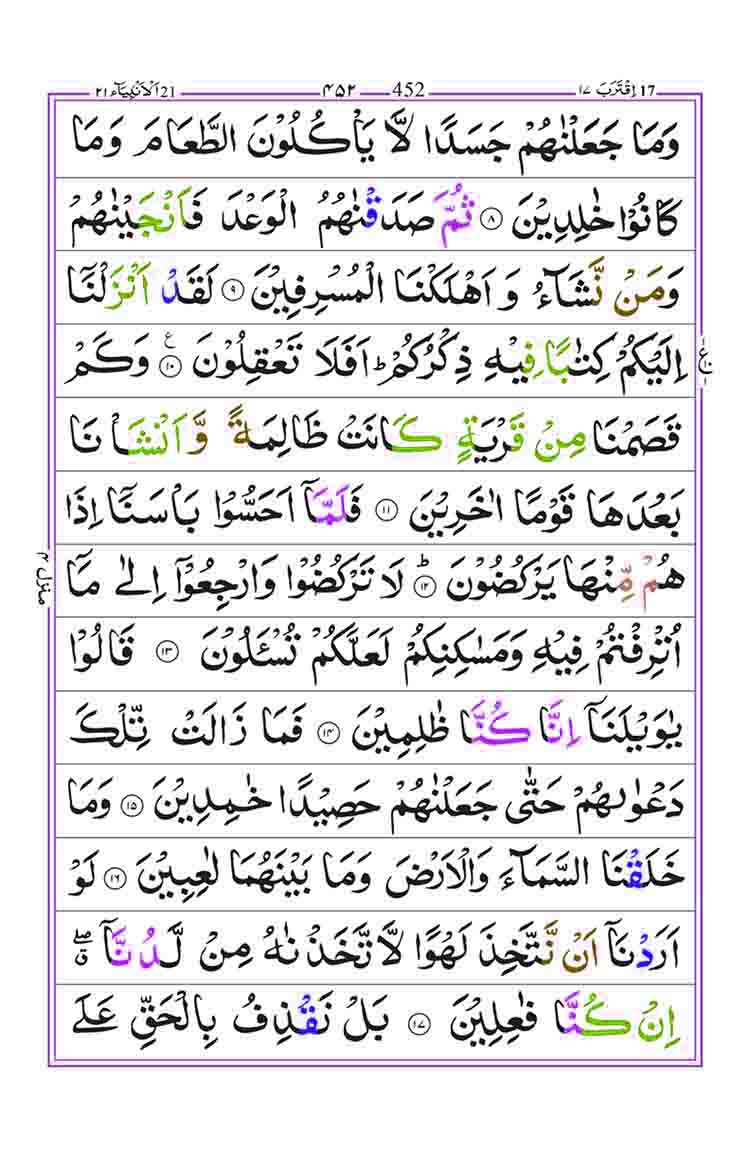 17 اِقْتَرَبَ ١٧ 452 ۴۵۲ 21 اَلْاَنْۢبِيَآء ٢١
وَمَا جَعَلْنٰهُمْ جَسَدًا لَّا يَاْكُلُوْنَ الطَّعَامَ وَمَا
كَانُوْا خٰلِدِيْنَ ۸ ثُمَّ صَدَقْنٰهُمُ الْوَعْدَ فَاَنْجَيْنٰهُمْ
وَمَنْ نَّشَآءُ وَاَهْلَكْنَا الْمُسْرِفِيْنَ ۹ لَقَدْ اَنْزَلْنَاۤ
اِلَيْكُمْ كِتٰبًا فِيْهِ ذِكْرُكُمْ ؕ اَفَلَا تَعْقِلُوْنَ ۱۰ ع وَكَمْ
قَصَمْنَا مِنْ قَرْيَةٍ كَانَتْ ظَالِمَةً وَّاَنْشَاْنَا
بَعْدَهَا قَوْمًا اٰخَرِيْنَ ۱۱ فَلَمَّاۤ اَحَسُّوْا بَاْسَنَاۤ اِذَا
هُمْ مِّنْهَا يَرْكُضُوْنَ ؕ ۱۲ لَا تَرْكُضُوْا وَارْجِعُوْۤا اِلٰى مَاۤ
اُتْرِفْتُمْ فِيْهِ وَمَسٰكِنِكُمْ لَعَلَّكُمْ تُسْـَٔلُوْنَ ۱۳ قَالُوْا
يٰوَيْلَنَاۤ اِنَّا كُنَّا ظٰلِمِيْنَ ۱۴ فَمَا زَالَتْ تِّلْكَ
دَعْوٰىهُمْ حَتّٰى جَعَلْنٰهُمْ حَصِيْدًا خٰمِدِيْنَ ۱۵ وَمَا
خَلَقْنَا السَّمَآءَ وَالْاَرْضَ وَمَا بَيْنَهُمَا لٰعِبِيْنَ ۱۶ لَوْ
اَرَدْنَاۤ اَنْ نَّتَّخِذَ لَهْوًا لَّاتَّخَذْنٰهُ مِنْ لَّدُنَّاۤ ۖق
اِنْ كُنَّا فٰعِلِيْنَ ۱۷ بَلْ نَقْذِفُ بِالْحَقِّ عَلَى
منزل ۴